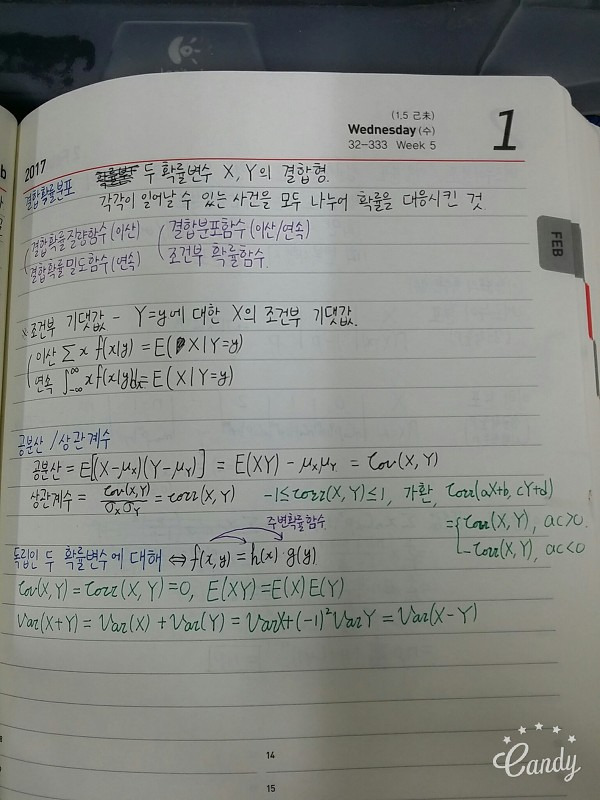 (1.5 己未)
Wednesday (수)
32-333 Week 5
1
2017
FEB
결합확률분포 두 확률변수 X, Y의 결합형.
각각이 일어날 수 있는 사건을 모두 나누어 확률을 대응시킨 것.
결합확률질량함수(이산) 결합분포함수(이산/연속)
결합확률밀도함수(연속) 조건부 확률함수.
※조건부 기댓값 - Y=y에 대한 X의 조건부 기댓값.
이산 ∑ x f(x|y) = E(X|Y=y)
연속 ∫_{-∞}^{∞} x f(x|y)dx = E(X|Y=y)
공분산/상관계수
공분산 = E[(X-μ_X)(Y-μ_Y)] = E(XY) - μ_Xμ_Y = Cov(X, Y)
상관계수 = Cov(X,Y)/σ_Xσ_Y = corr(X, Y) -1≤corr(X,Y)≤1, 가환, Corr(aX+b, cY+d)
= { Corr(X, Y), ac>0.
-Corr(X, Y), ac<0
주변확률함수
독립인 두 확률변수에 대해 ⇔ f(x,y) = h(x)·g(y)
Cov(X,Y) = Corr(X, Y) = 0, E(XY) = E(X)E(Y)
Var(X+Y) = Var(X) + Var(Y) = VarX+(-1)²VarY = Var(X-Y)
14
15
Candy